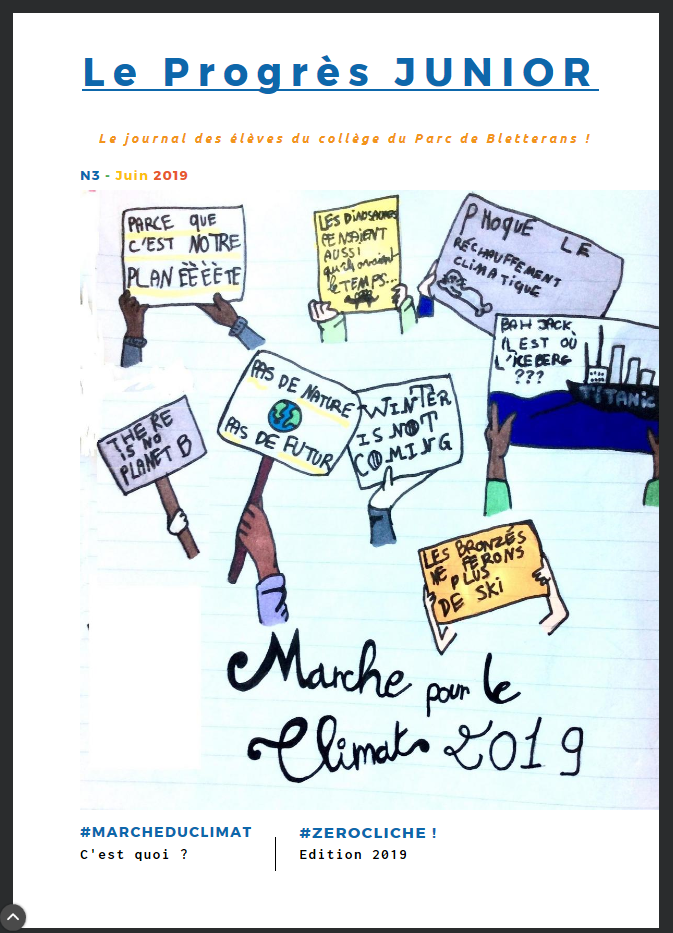 Le Progrès JUNIOR
Le journal des élèves du collège du Parc de Bletterans !
N3 - Juin 2019
PARCE QUE
C'EST NOTRE
PLANÈÈÈÈTE
LES DINOSAURES
PENSAIENT
AUSSI
qu'ils avaient
le TEMPS...
PHOQUE LE
RÉCHAUFFEMENT
CLIMATIQUE
BAH JACK,
IL EST OÙ
L'ICEBERG
???
TITANIC
THERE
IS NO
PLANET B
PAS DE NATURE
PAS DE FUTUR
WINTER
IS NOT
COMING
LES BRONZÉS
NE FERONS
PLUS
DE SKI
Marche pour le
Climat 2019
#MARCHEDUCLIMAT
C'est quoi ?
#ZEROCLICHE !
Edition 2019